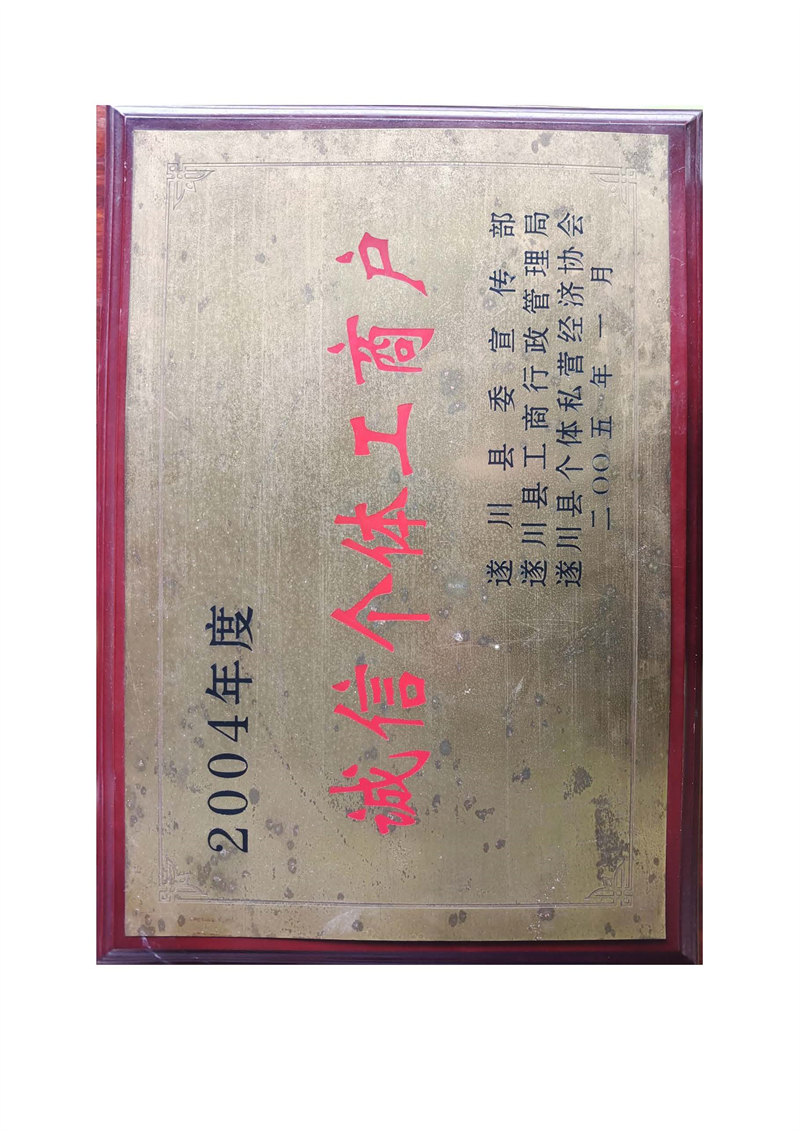 2004年度
诚信个体工商户
遂川县委宣传部
遂川县工商行政管理局
遂川县个体私营经济协会
二〇〇五年一月